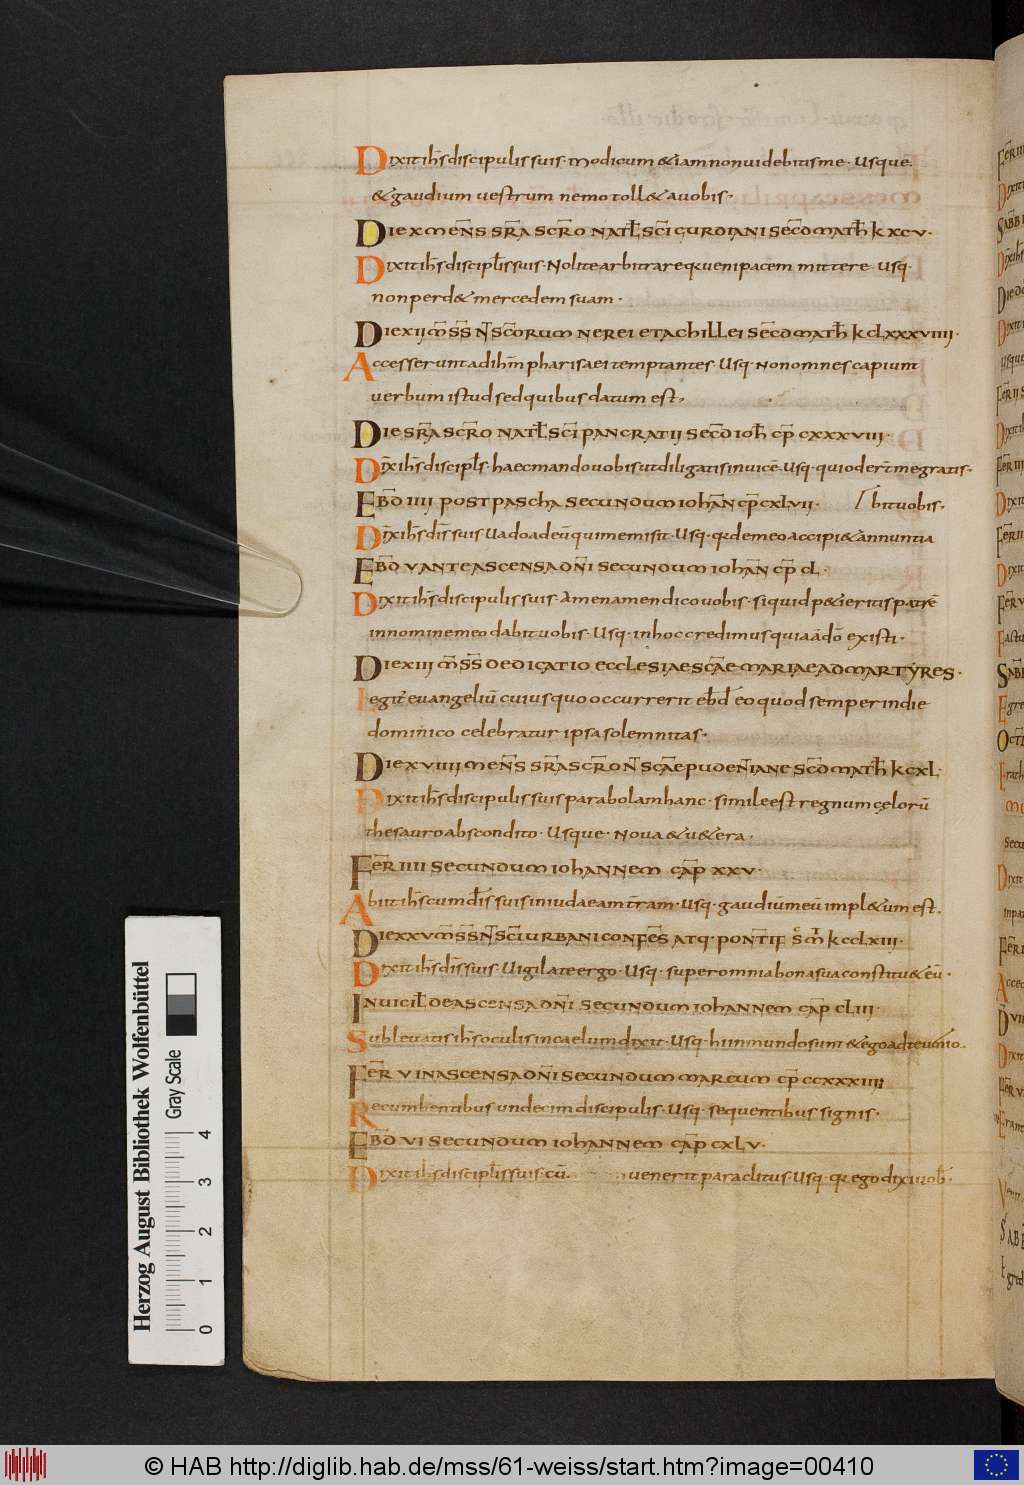 Dixit ih̅s discipulis suis· modicum & iam non uidebitis me· Usque·
& gaudium uestrum nemo toll& a uobis·
DIE X MEN̅S S̅R̅A SCR̅O NATL̅ SC̅I GURDIANI SEC̅D MATH̅ K XCV·
Dixit ih̅s discipl̅is suis· Nolite arbitrare q̅ ueni pacem mittere· Usq·
non perd& mercedem suam·
DIE XII M̅ S̅S̅ N̅ SC̅ORUM NEREI ET ACHILLEI SEC̅D MATH̅ K CLXXXVIIII·
Accesserunt ad ih̅m pharisaei temptantes· Usq· Non omnes capiunt
uerbum istud sed quibus datum est·
DIE S̅R̅A SCR̅O NATL̅ SC̅I PANCRATII SEC̅D IOH̅ CP̅ CXXXVIII·
Dix̅ ih̅s discipl̅s· haec mando uobis ut diligatis inuice̅· Usq· quioder̅ me gratis·
EBD̅ IIII POST PASCHA SECUNDUM IOHAN̅ CP̅ CXLVII· bit uobis·
Dix̅ ih̅s dis̅ suis· Uado ad eu̅ qui me misit· Usq· q̅ de meo accipi& annuntia
EBD̅ V ANTE ASCENSA DN̅I SECUNDUM IOHAN̅ CP̅ CL·
Dixit ih̅s discipulis suis· Amen amen dico uobis· siquid p&ieritis patre̅
in nomine meo dabit uobis· Usq· in hoc credimus quia a do̅ existi·
DIE XIII M̅ S̅S̅ DEDICATIO ECCLESIAE SC̅AE MARIAE AD MARTYRES·
Legit̅ euangeliu̅ cuius quo occurrerit ebd̅ eo quod semper in die
dominico celebratur ipsa solemnitas·
DIE XVIIII MEN̅S S̅R̅A SCR̅O N̅ SC̅AE PUDEN̅IANE SC̅D MATH̅ K CXL·
Dixit ih̅s discipulis suis parabolam hanc· simile est regnum cęloru̅
thesauro abscondito· Usque· Noua & u&era·
FER̅ IIII SECUNDUM IOHANNEM CAP̅ XXV·
Abiit ih̅s cum dis̅ suis in iudaeam tr̅am· Usq· gaudiu̅ meu̅ impl&um est·
DIE XXV M̅ S̅S̅ N̅ SC̅I URBANI CONFES̅ ATQ· PONTIF̅ S̅ M̅ K CCLXIII·
Dixit ih̅s dis̅ suis· Uigilate ergo· Usq· super omnia bona sua constitu& eu̅·
IN UIGIL̅ DE ASCENSA DN̅I SECUNDUM IOHANNEM CAP̅ CLIII·
Subleuatis ih̅s oculis in caelum dixit· Usq· hi in mundo sunt & ego ad te uenio·
FER̅ V IN ASCENSA DN̅I SECUNDUM MARCUM CP̅ CCXXXIIII
Recumbentibus undecim discipulis· Usq· sequentibus signis·
EBD̅ VI SECUNDUM IOHANNEM CAP̅ CXLV·
Dixit ih̅s discipl̅is suis· cu̅ uenerit paraclitus· Usq· q̅ ego dixi uob̅·
Herzog August Bibliothek Wolfenbüttel
Gray Scale
0 1 2 3 4
© HAB http://diglib.hab.de/mss/61-weiss/start.htm?image=00410